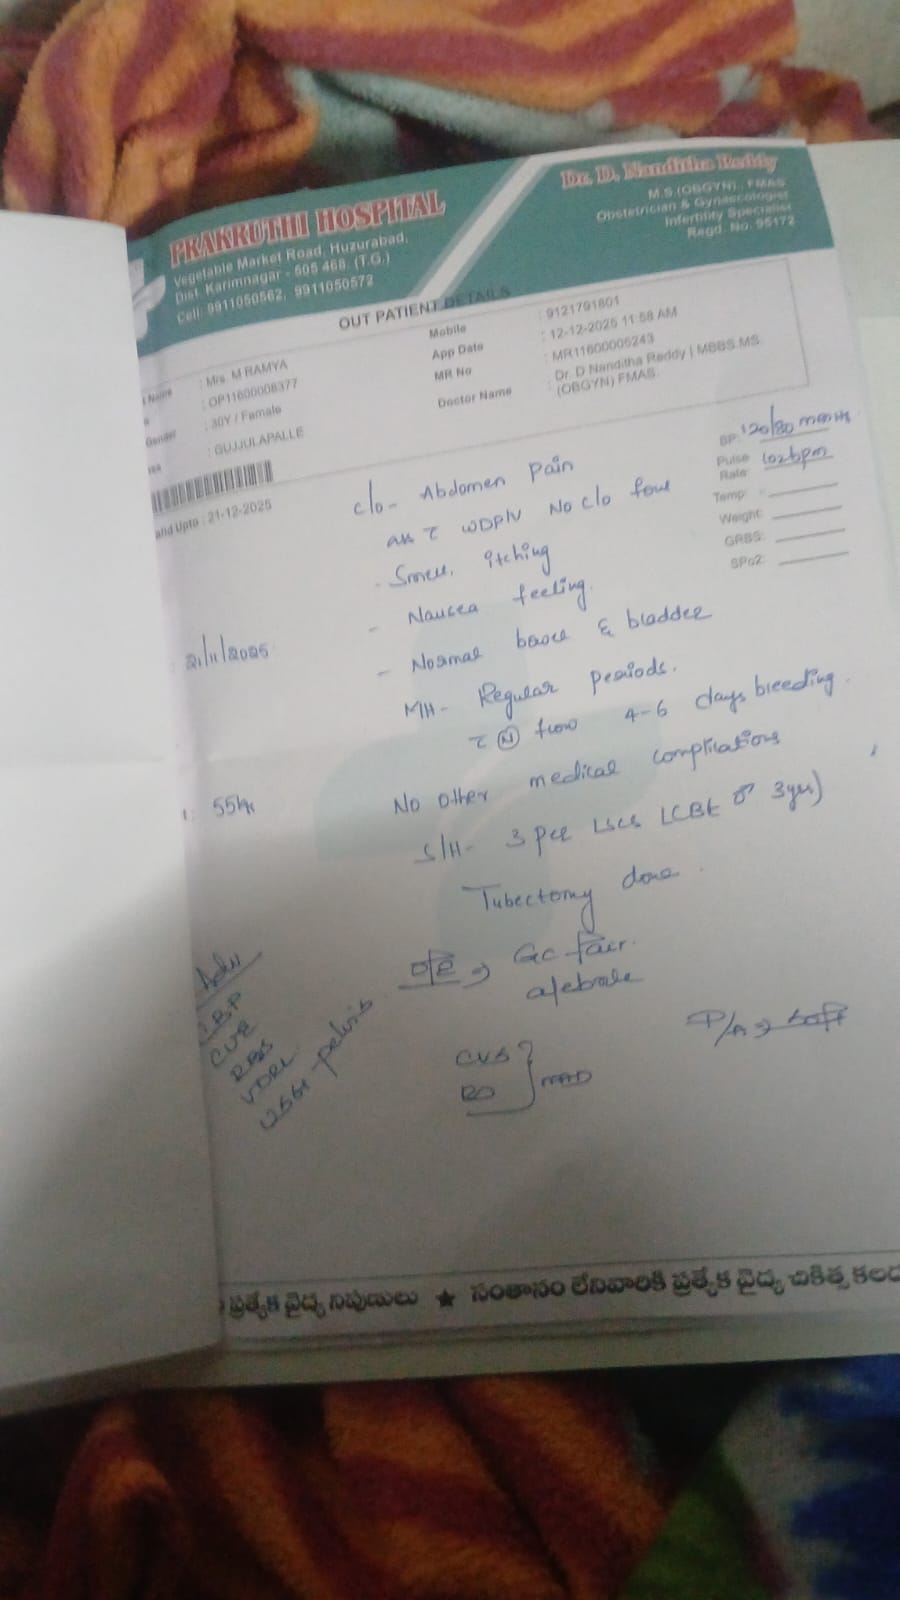 PRAKRUTHI HOSPITAL
Vegetable Market Road, Huzurabad,
Dist. Karimnagar - 505 468. (T.G.)
Cell: 9911050562, 9911050572
Dr. D. Nanditha Reddy
M.S.(OBGYN)., FMAS
Obstetrician & Gynaecologist
Infertility Specialist
Regd. No. 95172
OUT PATIENT DETAILS
Name : Mrs. M RAMYA
: OP11600008377
Gender : 30Y / Female
: GUJJULAPALLE
Mobile : 9121791801
App Date : 12-12-2025 11:58 AM
MR No : MR11600005243
Doctor Name : Dr. D Nanditha Reddy | MBBS.MS.
(OBGYN) FMAS.
and Upto : 21-12-2025
BP: 120/80
Pulse Rate: 102bpm
Temp:
Weight:
GRBS:
SPo2:
c/o- Abdomen Pain
WDPIV No c/o foul
- Smell, itching
- Nausea feeling.
: 21/11/2025
- Normal & bladder
M/H- Regular periods.
(N) flow 4-6 days bleeding.
: 55
No other medical complications
S/H- 3 LSCS LCBE 3
Tubectomy done.
O/E → GC fair.
afebrile
P/A → soft
CVS
NAD
CBP
CUE
RBS
VDRL
USG pelvis
ప్రత్యేక వైద్య నిపుణులు ★ సంతానం లేనివారికి ప్రత్యేక వైద్య చికిత్స కలదు